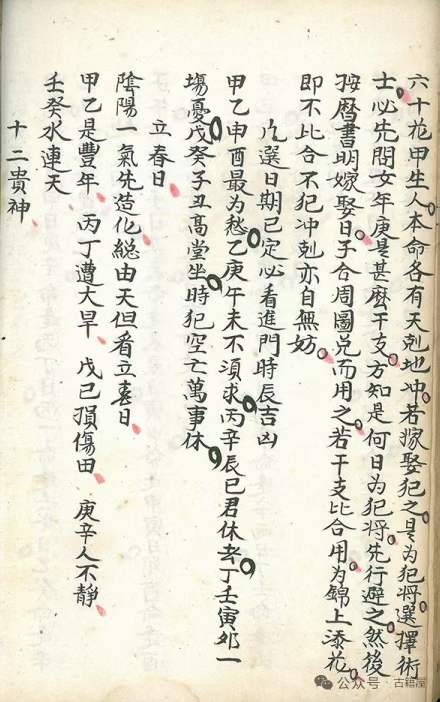 六十花甲生人本命各有天剋地冲若嫁娶犯之是為犯將選擇術
士必先問女年庚是甚麽干支方知是何日為犯將先行避之然後
按曆書明嫁娶日子合周圖兑而用之若干支比合用為錦上添花
即不比合不犯冲剋亦自無妨
凢選日期已定必看進門時辰吉凶
甲乙申酉最為愁乙庚午未不湏求丙辛辰巳君休去丁壬寅夘一
塲憂戊癸子丑高堂坐時犯空亡萬事休
立春日
陰陽一氣先造化総由天但看立春日
甲乙是豐年丙丁遭大旱戊己損傷田庚辛人不靜
壬癸水連天
十二貴神
公众号·古籍屋